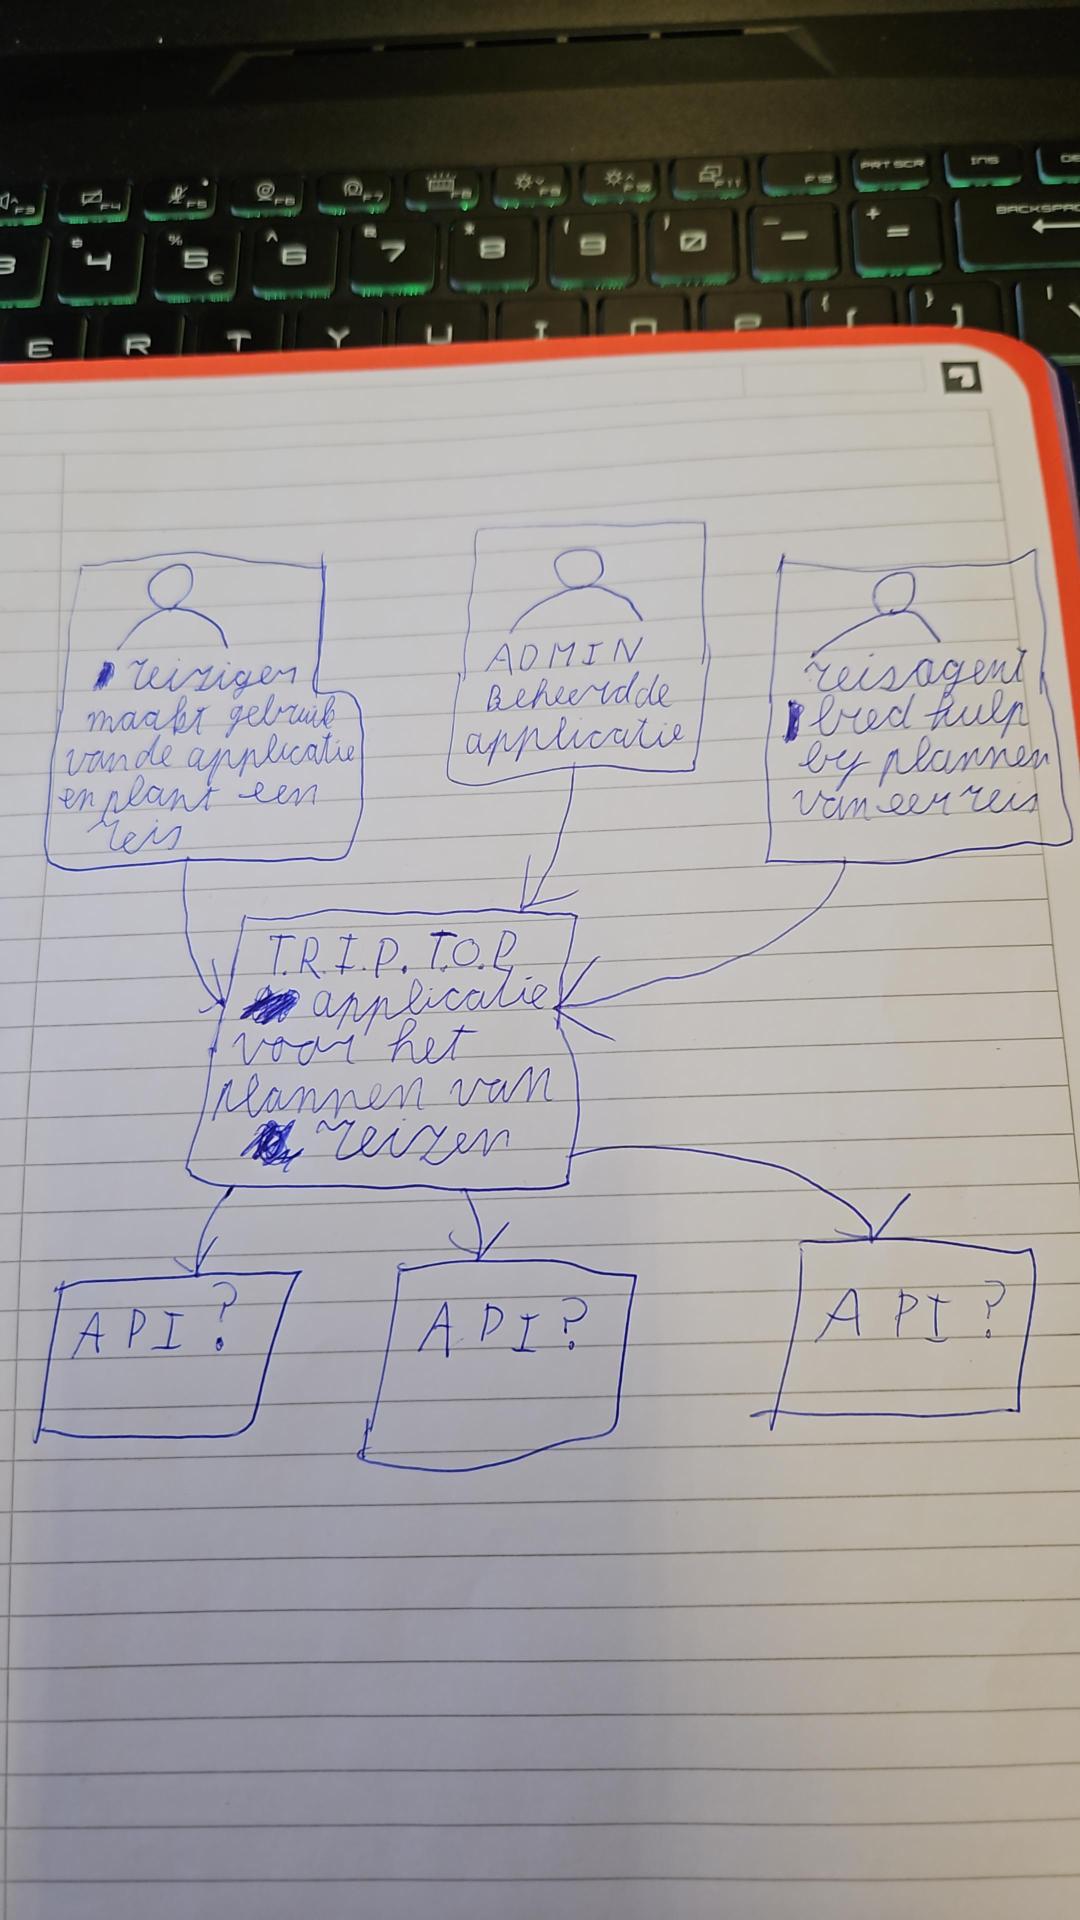 F3 F4 F5 F6 F7 F8 F9 F10 F11 F12 PRT SCR INS
$ 4 % 5 € ^ 6 & 7 * 8 ( 9 ) 0 _ - + = BACKSPACE
E R T Y U I O P { [ } ]
reiziger
maakt gebruik
van de applicatie
en plant een
reis
ADMIN
Beheerdde
applicatie
reisagent
bied hulp
by plannen
van een reis
T.R.I.P. T.O.P
applicatie
voor het
plannen van
reizen
API?
API?
API?